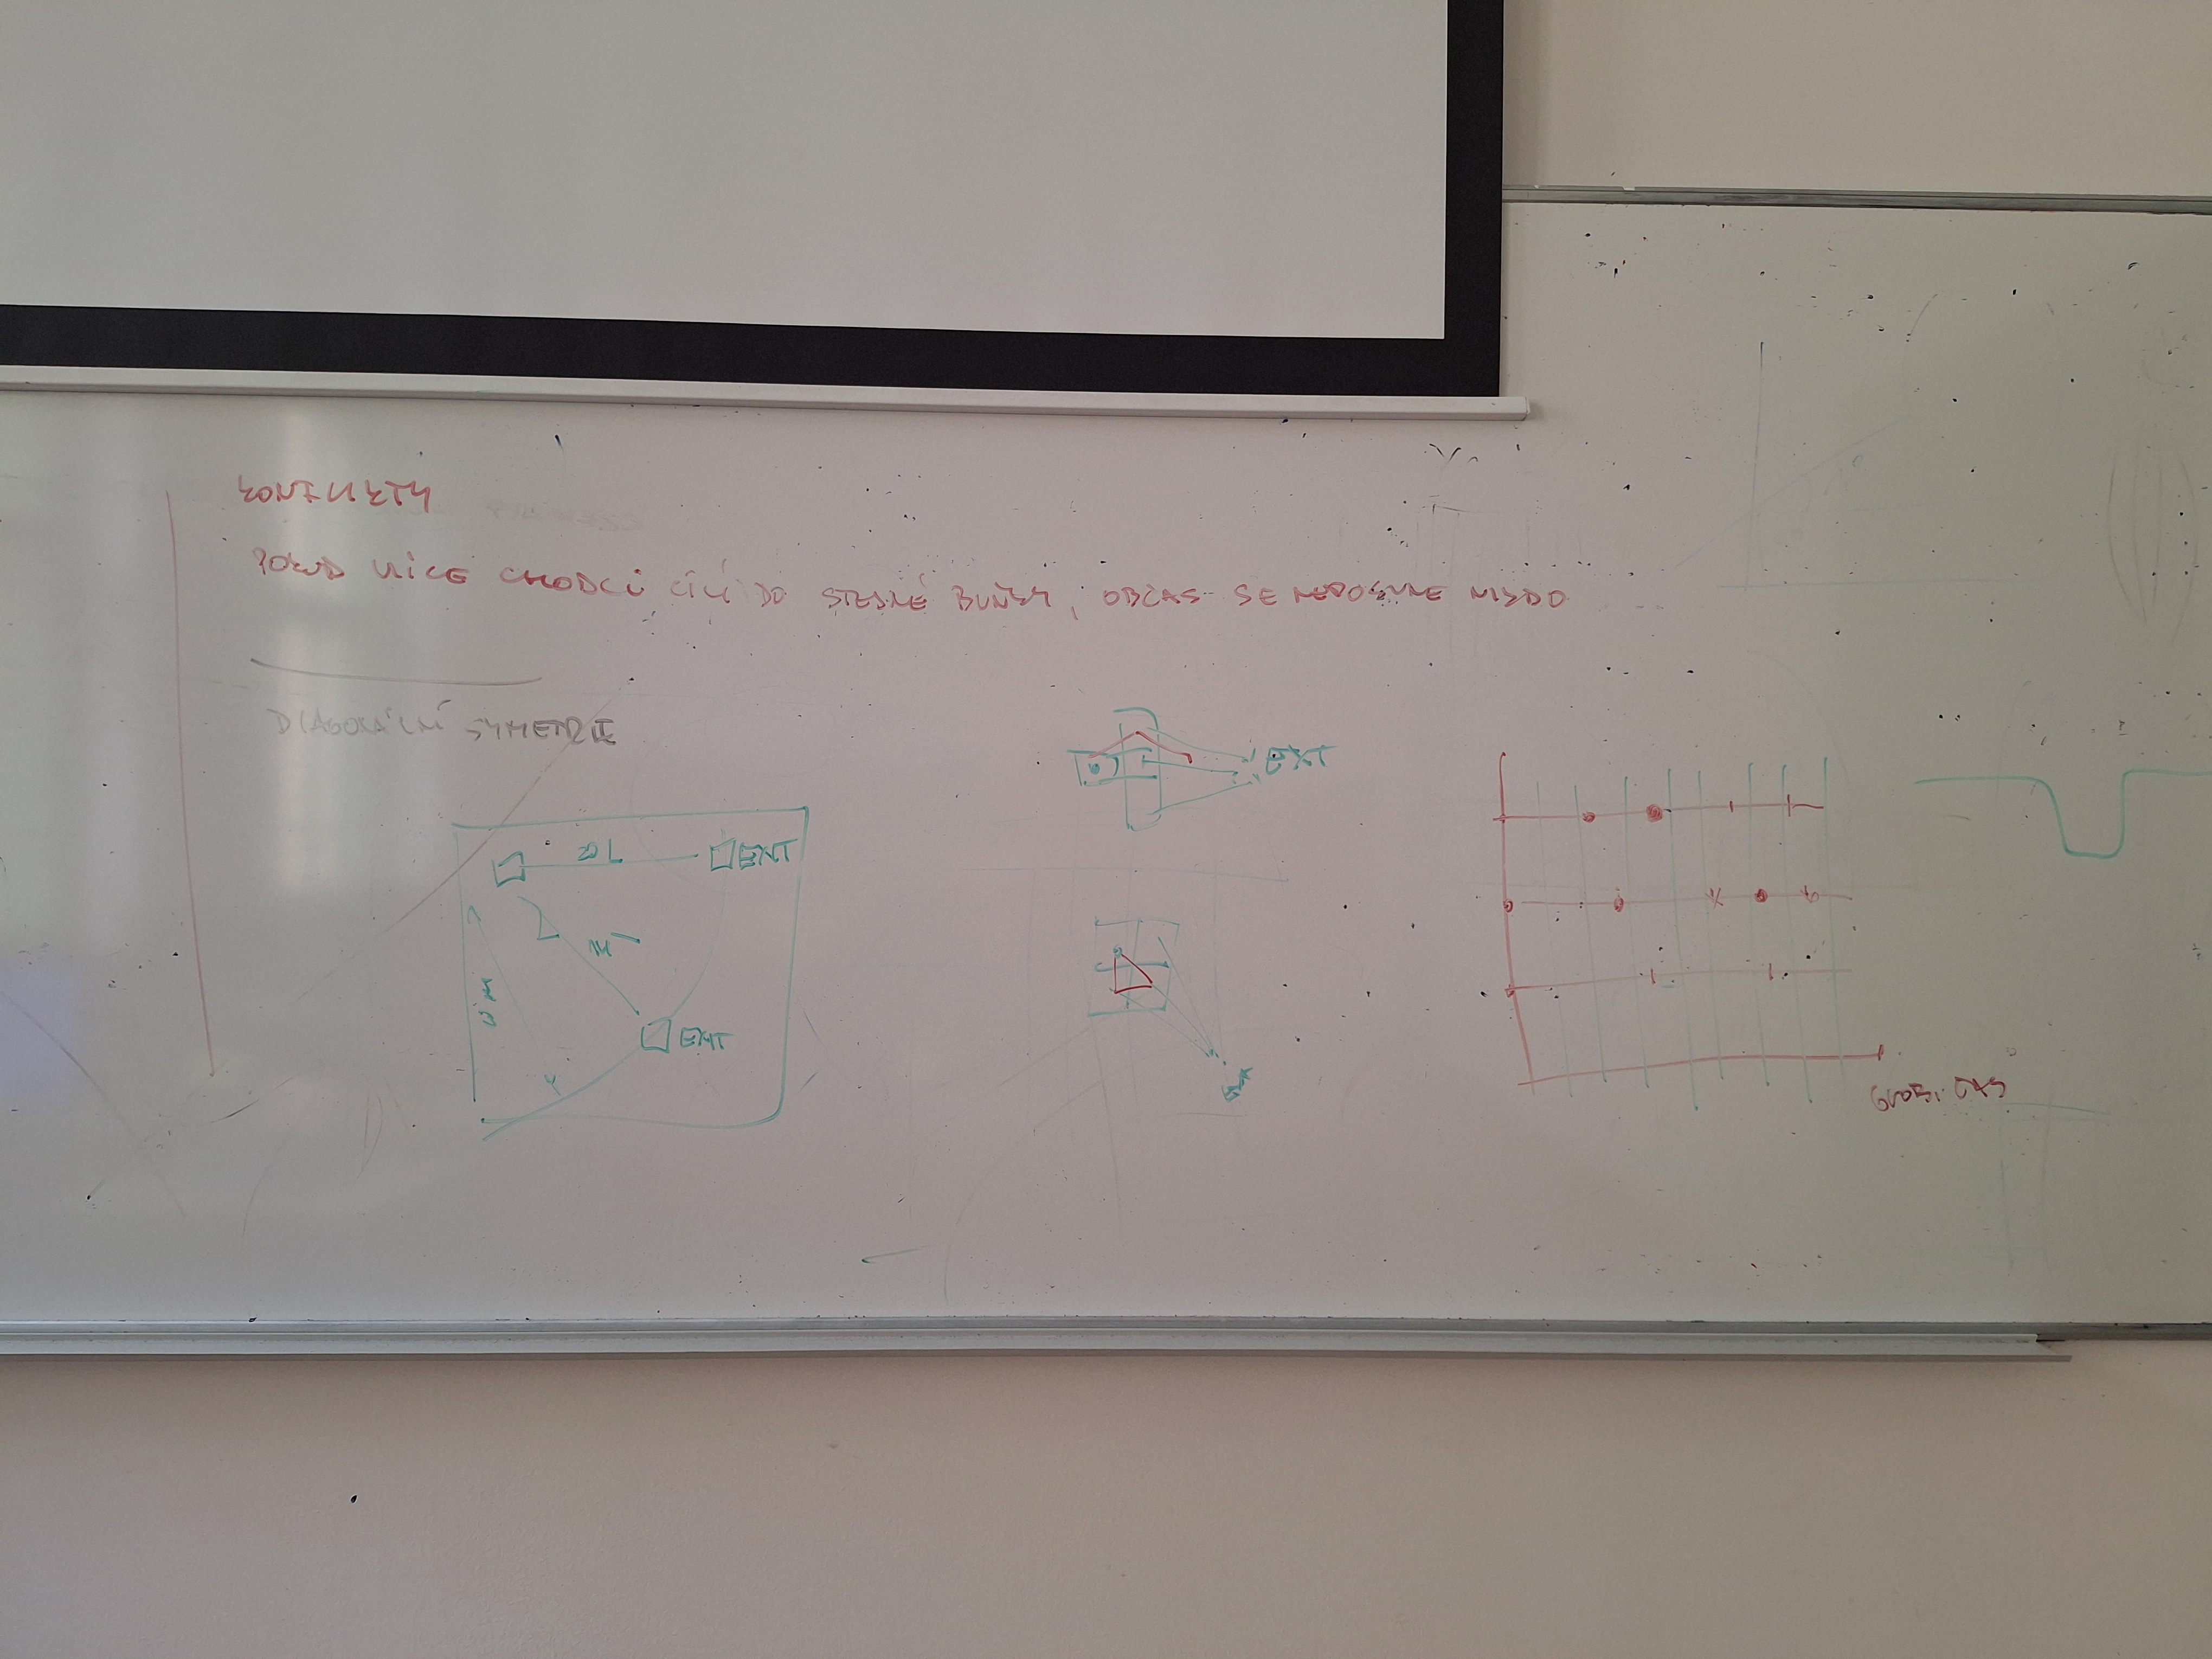 KONFLIKTY
POKUD VÍCE CHODCŮ CÍLÍ DO STEJNÉ BUŇKY, OBČAS SE NEPOSUNE NIKDO
DIAGONÁLNÍ SYMETRIE
EXIT
L
EXIT
EXIT